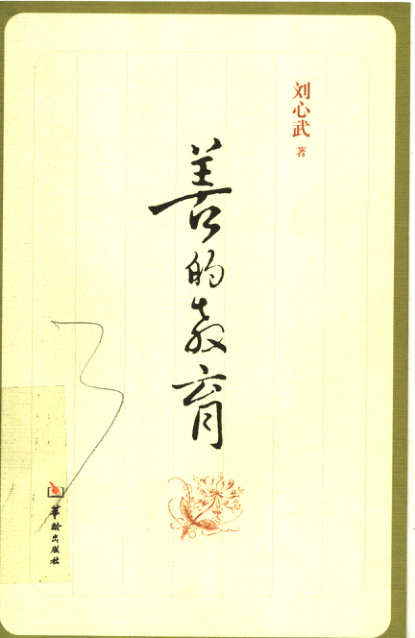 刘心武 著
善的教育
华龄出版社